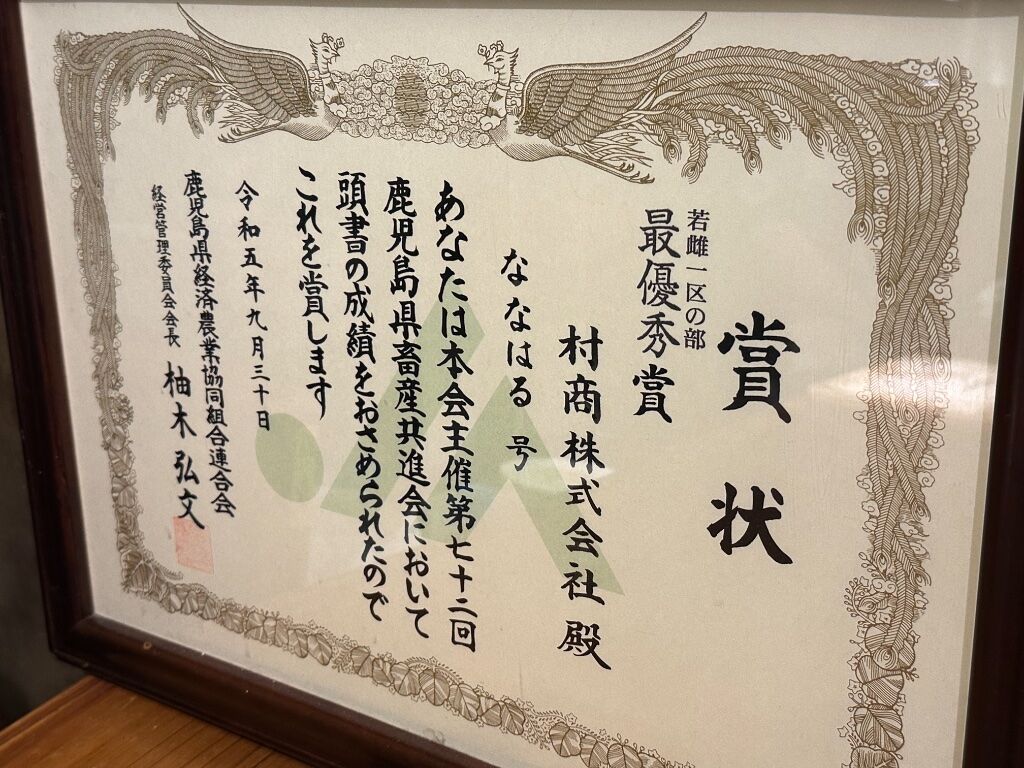 賞状
若雌一区の部
最優秀賞
村商株式会社殿
ななはる号
あなたは本会主催第七十二回
鹿児島県畜産共進会において
頭書の成績をおさめられたので
これを賞します
令和五年九月三十日
鹿児島県経済農業協同組合連合会
経営管理委員会会長 柚木弘文